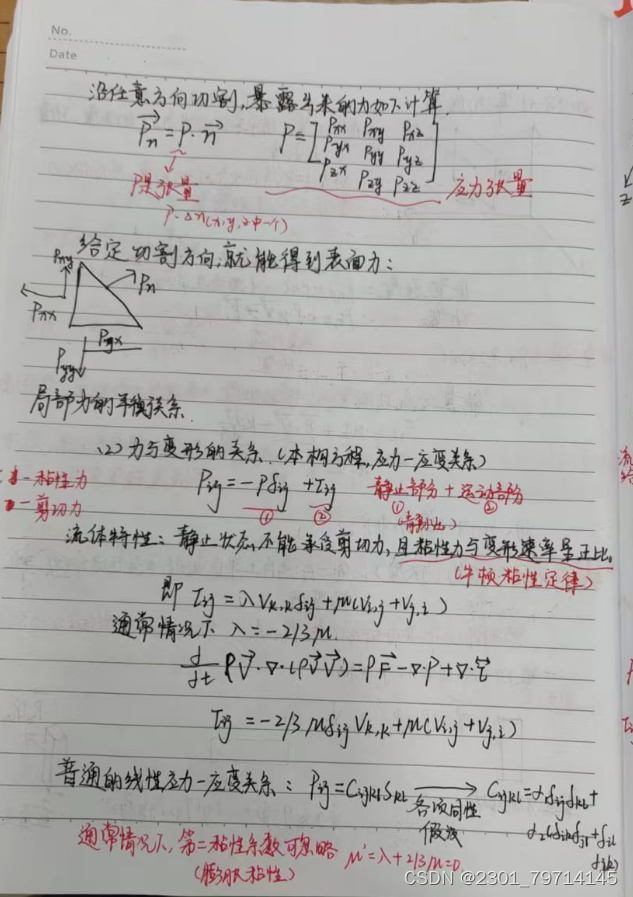 No.
Date
沿任意方向切割,暴露出来的力如下计算.
Pn = P·n  P = [Pxx Pxy Pxz
Pyx Pyy Pyz
Pzx Pzy Pzz] 应力张量
P是张量
给定切割方向,就能得到表面力:
Pxy
Pn
Pxx
Pyx
Pyy
局部力的平衡关系.
(2)力与变形的关系.(本构方程,应力一应变关系)
一粘性力 Pij = -Pδij + τij 静止部分 + 运动部分
一剪切力 ① ② ① ②
流体特性:静止状态,不能承受剪切力,且粘性力与变形速率呈正比。
(牛顿粘性定律)
即 τij = λVk,kδij + μ(Vi,j + Vj,i)
通常情况下 λ = -2/3μ.
d/dt ρV·∇·(ρVV) = ρF - ∇·P + ∇·τ
τij = -2/3μδijVk,k + μ(Vi,j + Vj,i)
普通的线性应力一应变关系: Pij = CijklSkl → Cijkl = α1δijδkl +
各项同性 α2(δikδjl + δil
假设 δjk)
通常情况下,第二粘性系数可忽略 μ' = λ + 2/3μ = 0
(膨胀粘性)
CSDN @2301_79714145